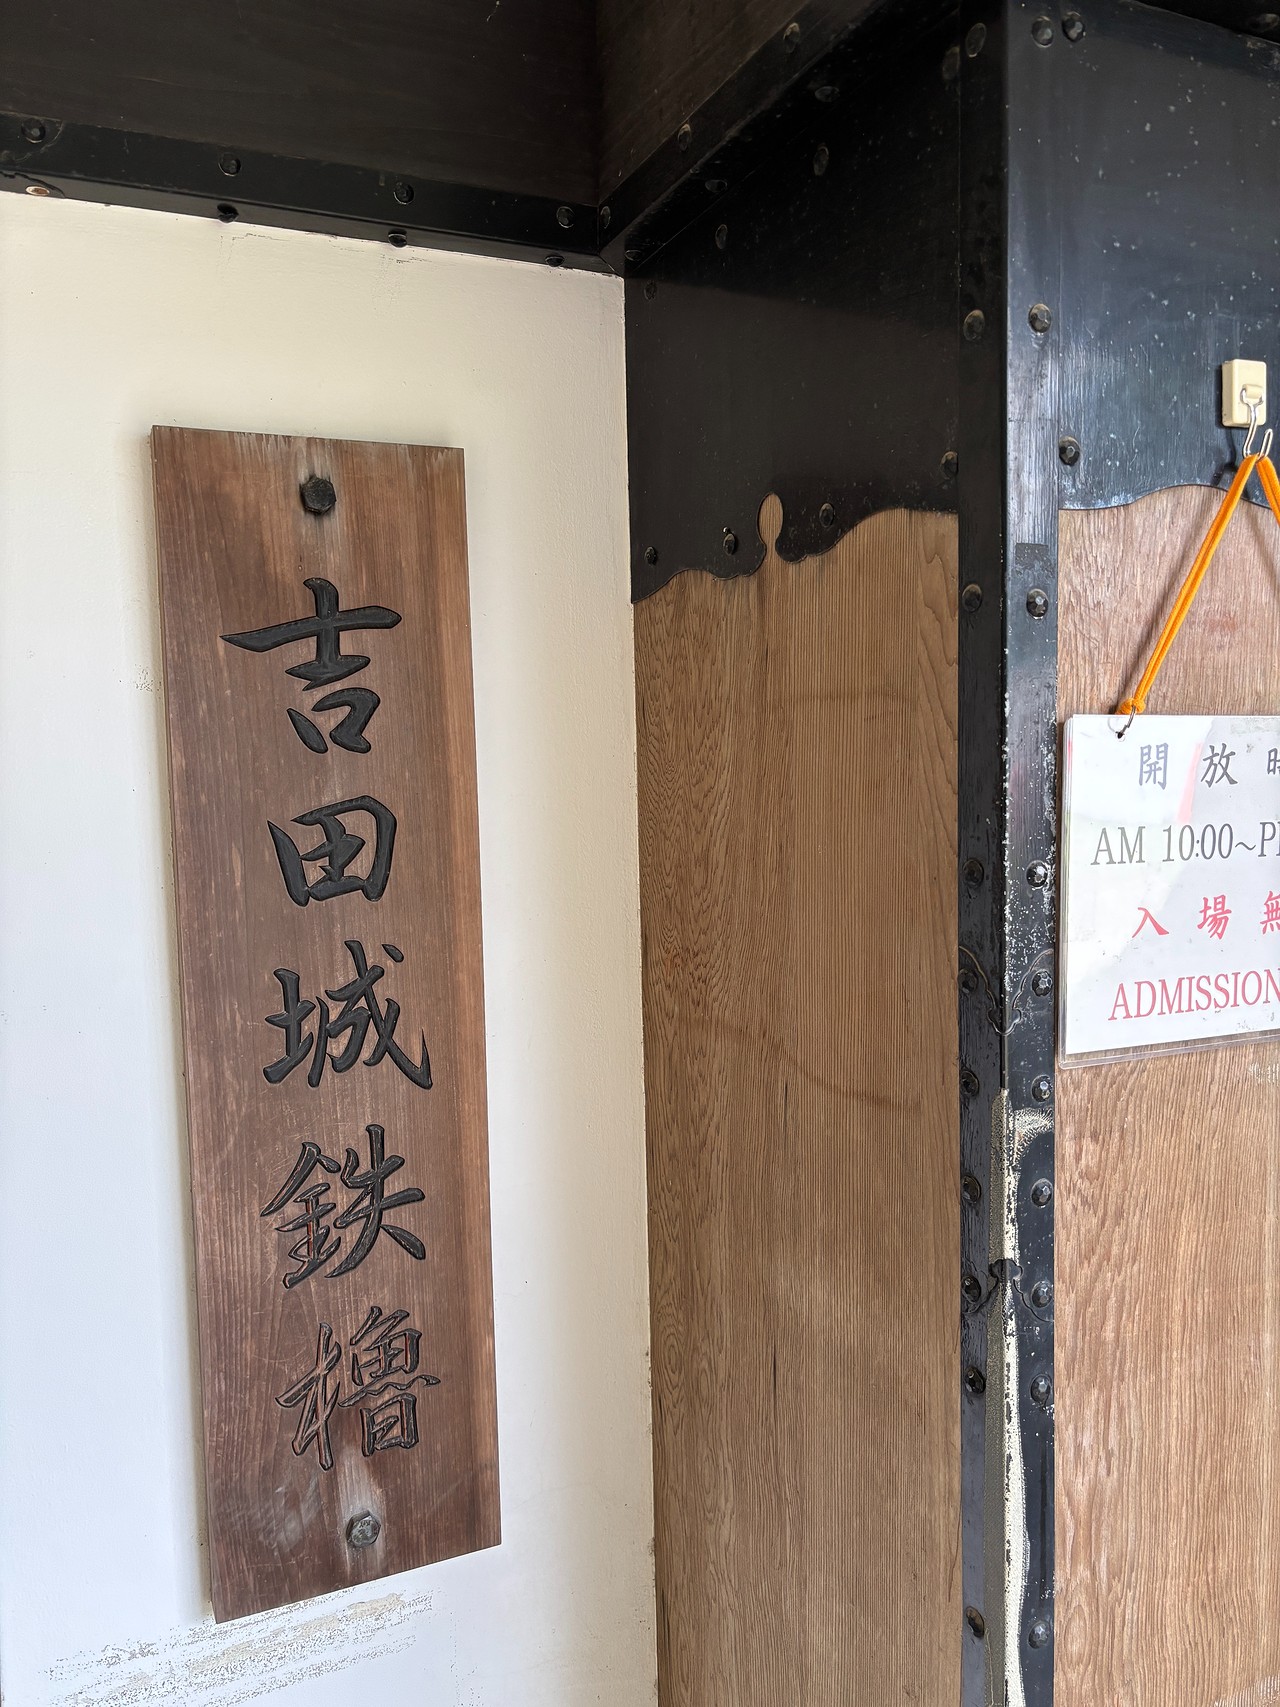 吉田城鉄櫓
開放時
AM 10:00～P
入場無
ADMISSION